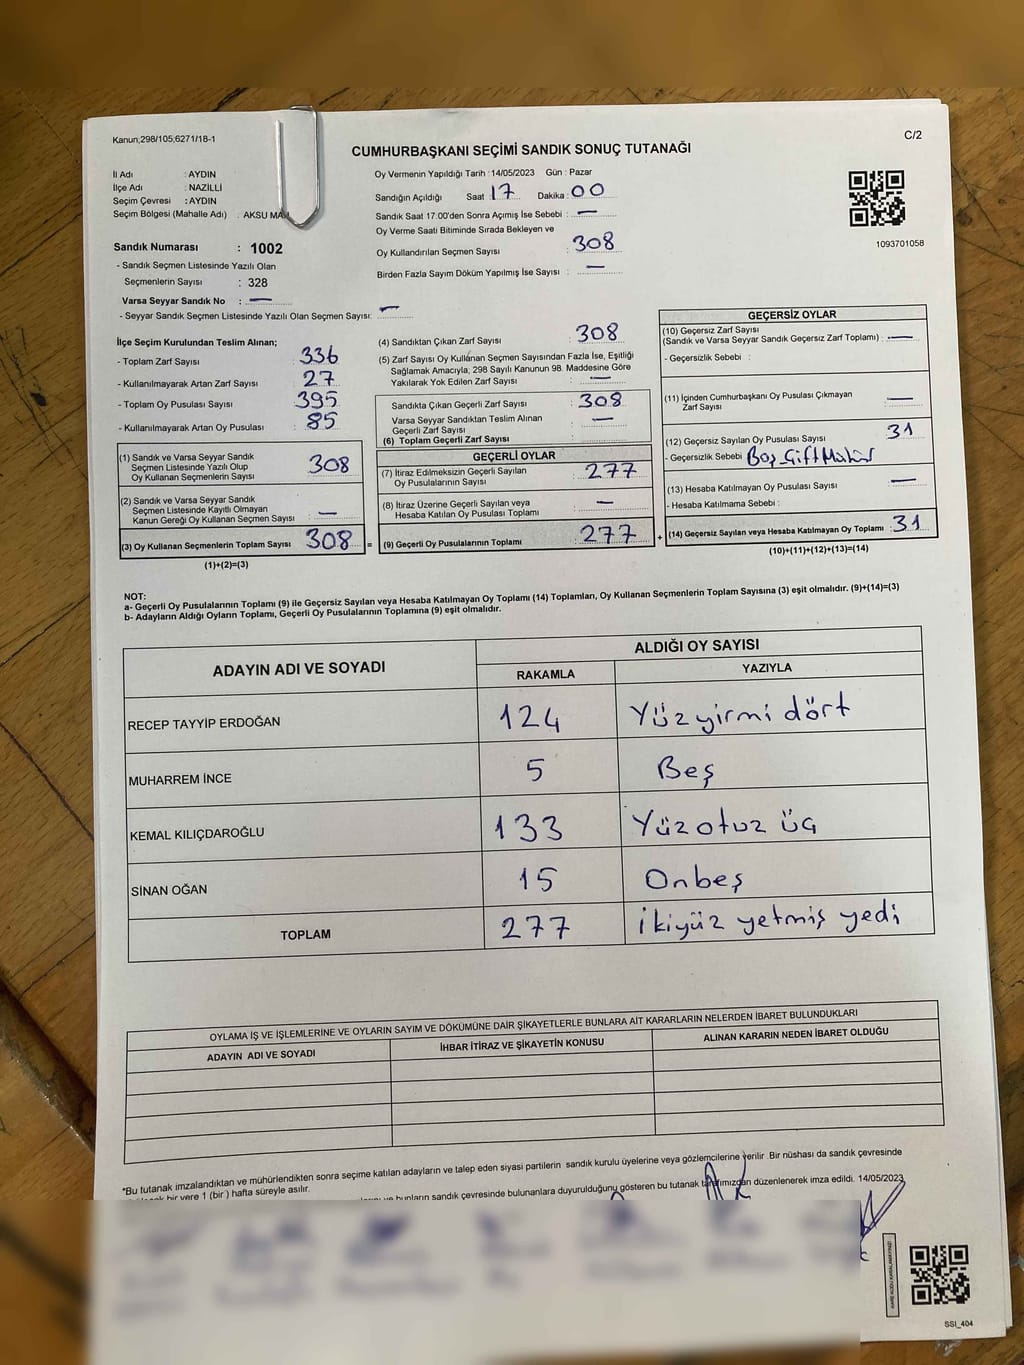 Kanun;298/105;6271/18-1
C/2
CUMHURBAŞKANI SEÇİMİ SANDIK SONUÇ TUTANAĞI
İl Adı : AYDIN
İlçe Adı : NAZİLLİ
Seçim Çevresi : AYDIN
Seçim Bölgesi (Mahalle Adı) : AKSU MAH
Sandık Numarası : 1002
- Sandık Seçmen Listesinde Yazılı Olan
Seçmenlerin Sayısı : 328
Varsa Seyyar Sandık No : —
- Seyyar Sandık Seçmen Listesinde Yazılı Olan Seçmen Sayısı: —
Oy Vermenin Yapıldığı Tarih : 14/05/2023 Gün : Pazar
Sandığın Açıldığı Saat : 17 Dakika : 00
Sandık Saat 17:00'den Sonra Açımış İse Sebebi : —
Oy Verme Saati Bitiminde Sırada Bekleyen ve
Oy Kullandırılan Seçmen Sayısı : 308
Birden Fazla Sayım Döküm Yapılmış İse Sayısı : —
1093701058
İlçe Seçim Kurulundan Teslim Alınan;
- Toplam Zarf Sayısı : 336
- Kullanılmayarak Artan Zarf Sayısı : 27
- Toplam Oy Pusulası Sayısı : 395
- Kullanılmayarak Artan Oy Pusulası : 85
(1) Sandık ve Varsa Seyyar Sandık
Seçmen Listesinde Yazılı Olup
Oy Kullanan Seçmenlerin Sayısı : 308
(2) Sandık ve Varsa Seyyar Sandık
Seçmen Listesinde Kayıtlı Olmayan
Kanun Gereği Oy Kullanan Seçmen Sayısı : —
(3) Oy Kullanan Seçmenlerin Toplam Sayısı : 308
(1)+(2)=(3)
(4) Sandıktan Çıkan Zarf Sayısı : 308
(5) Zarf Sayısı Oy Kullanan Seçmen Sayısından Fazla İse, Eşitliği
Sağlamak Amacıyla, 298 Sayılı Kanunun 98. Maddesine Göre
Yakılarak Yok Edilen Zarf Sayısı : —
Sandıkta Çıkan Geçerli Zarf Sayısı : 308
Varsa Seyyar Sandıktan Teslim Alınan
Geçerli Zarf Sayısı : —
(6) Toplam Geçerli Zarf Sayısı :
GEÇERLİ OYLAR
(7) İtiraz Edilmeksizin Geçerli Sayılan
Oy Pusulalarının Sayısı : 277
(8) İtiraz Üzerine Geçerli Sayılan veya
Hesaba Katılan Oy Pusulası Toplamı : —
= (9) Geçerli Oy Pusulalarının Toplamı : 277
GEÇERSİZ OYLAR
(10) Geçersiz Zarf Sayısı
(Sandık ve Varsa Seyyar Sandık Geçersiz Zarf Toplamı) : —
- Geçersizlik Sebebi :
(11) İçinden Cumhurbaşkanı Oy Pusulası Çıkmayan
Zarf Sayısı : —
(12) Geçersiz Sayılan Oy Pusulası Sayısı : 31
- Geçersizlik Sebebi : Boş, Çift Mühür
(13) Hesaba Katılmayan Oy Pusulası Sayısı : —
- Hesaba Katılmama Sebebi :
+ (14) Geçersiz Sayılan veya Hesaba Katılmayan Oy Toplamı : 31
(10)+(11)+(12)+(13)=(14)
NOT:
a- Geçerli Oy Pusulalarının Toplamı (9) ile Geçersiz Sayılan veya Hesaba Katılmayan Oy Toplamı (14) Toplamları, Oy Kullanan Seçmenlerin Toplam Sayısına (3) eşit olmalıdır. (9)+(14)=(3)
b- Adayların Aldığı Oyların Toplamı, Geçerli Oy Pusulalarının Toplamına (9) eşit olmalıdır.
ADAYIN ADI VE SOYADI
ALDIĞI OY SAYISI
RAKAMLA YAZIYLA
RECEP TAYYİP ERDOĞAN 124 Yüzyirmi dört
MUHARREM İNCE 5 Beş
KEMAL KILIÇDAROĞLU 133 Yüzotuz üç
SİNAN OĞAN 15 Onbeş
TOPLAM 277 ikiyüz yetmiş yedi
OYLAMA İŞ VE İŞLEMLERİNE VE OYLARIN SAYIM VE DÖKÜMÜNE DAİR ŞİKAYETLERLE BUNLARA AİT KARARLARIN NELERDEN İBARET BULUNDUKLARI
ADAYIN ADI VE SOYADI İHBAR İTİRAZ VE ŞİKAYETİN KONUSU ALINAN KARARIN NEDEN İBARET OLDUĞU
*Bu tutanak imzalandıktan ve mühürlendikten sonra seçime katılan adayların ve talep eden siyasi partilerin sandık kurulu üyelerine veya gözlemcilerine verilir. Bir nüshası da sandık çevresinde
bir yere 1 (bir) hafta süreyle asılır.
bunların sandık çevresinde bulunanlara duyurulduğunu gösteren bu tutanak tarafımızdan düzenlenerek imza edildi. 14/05/2023
SSI_404